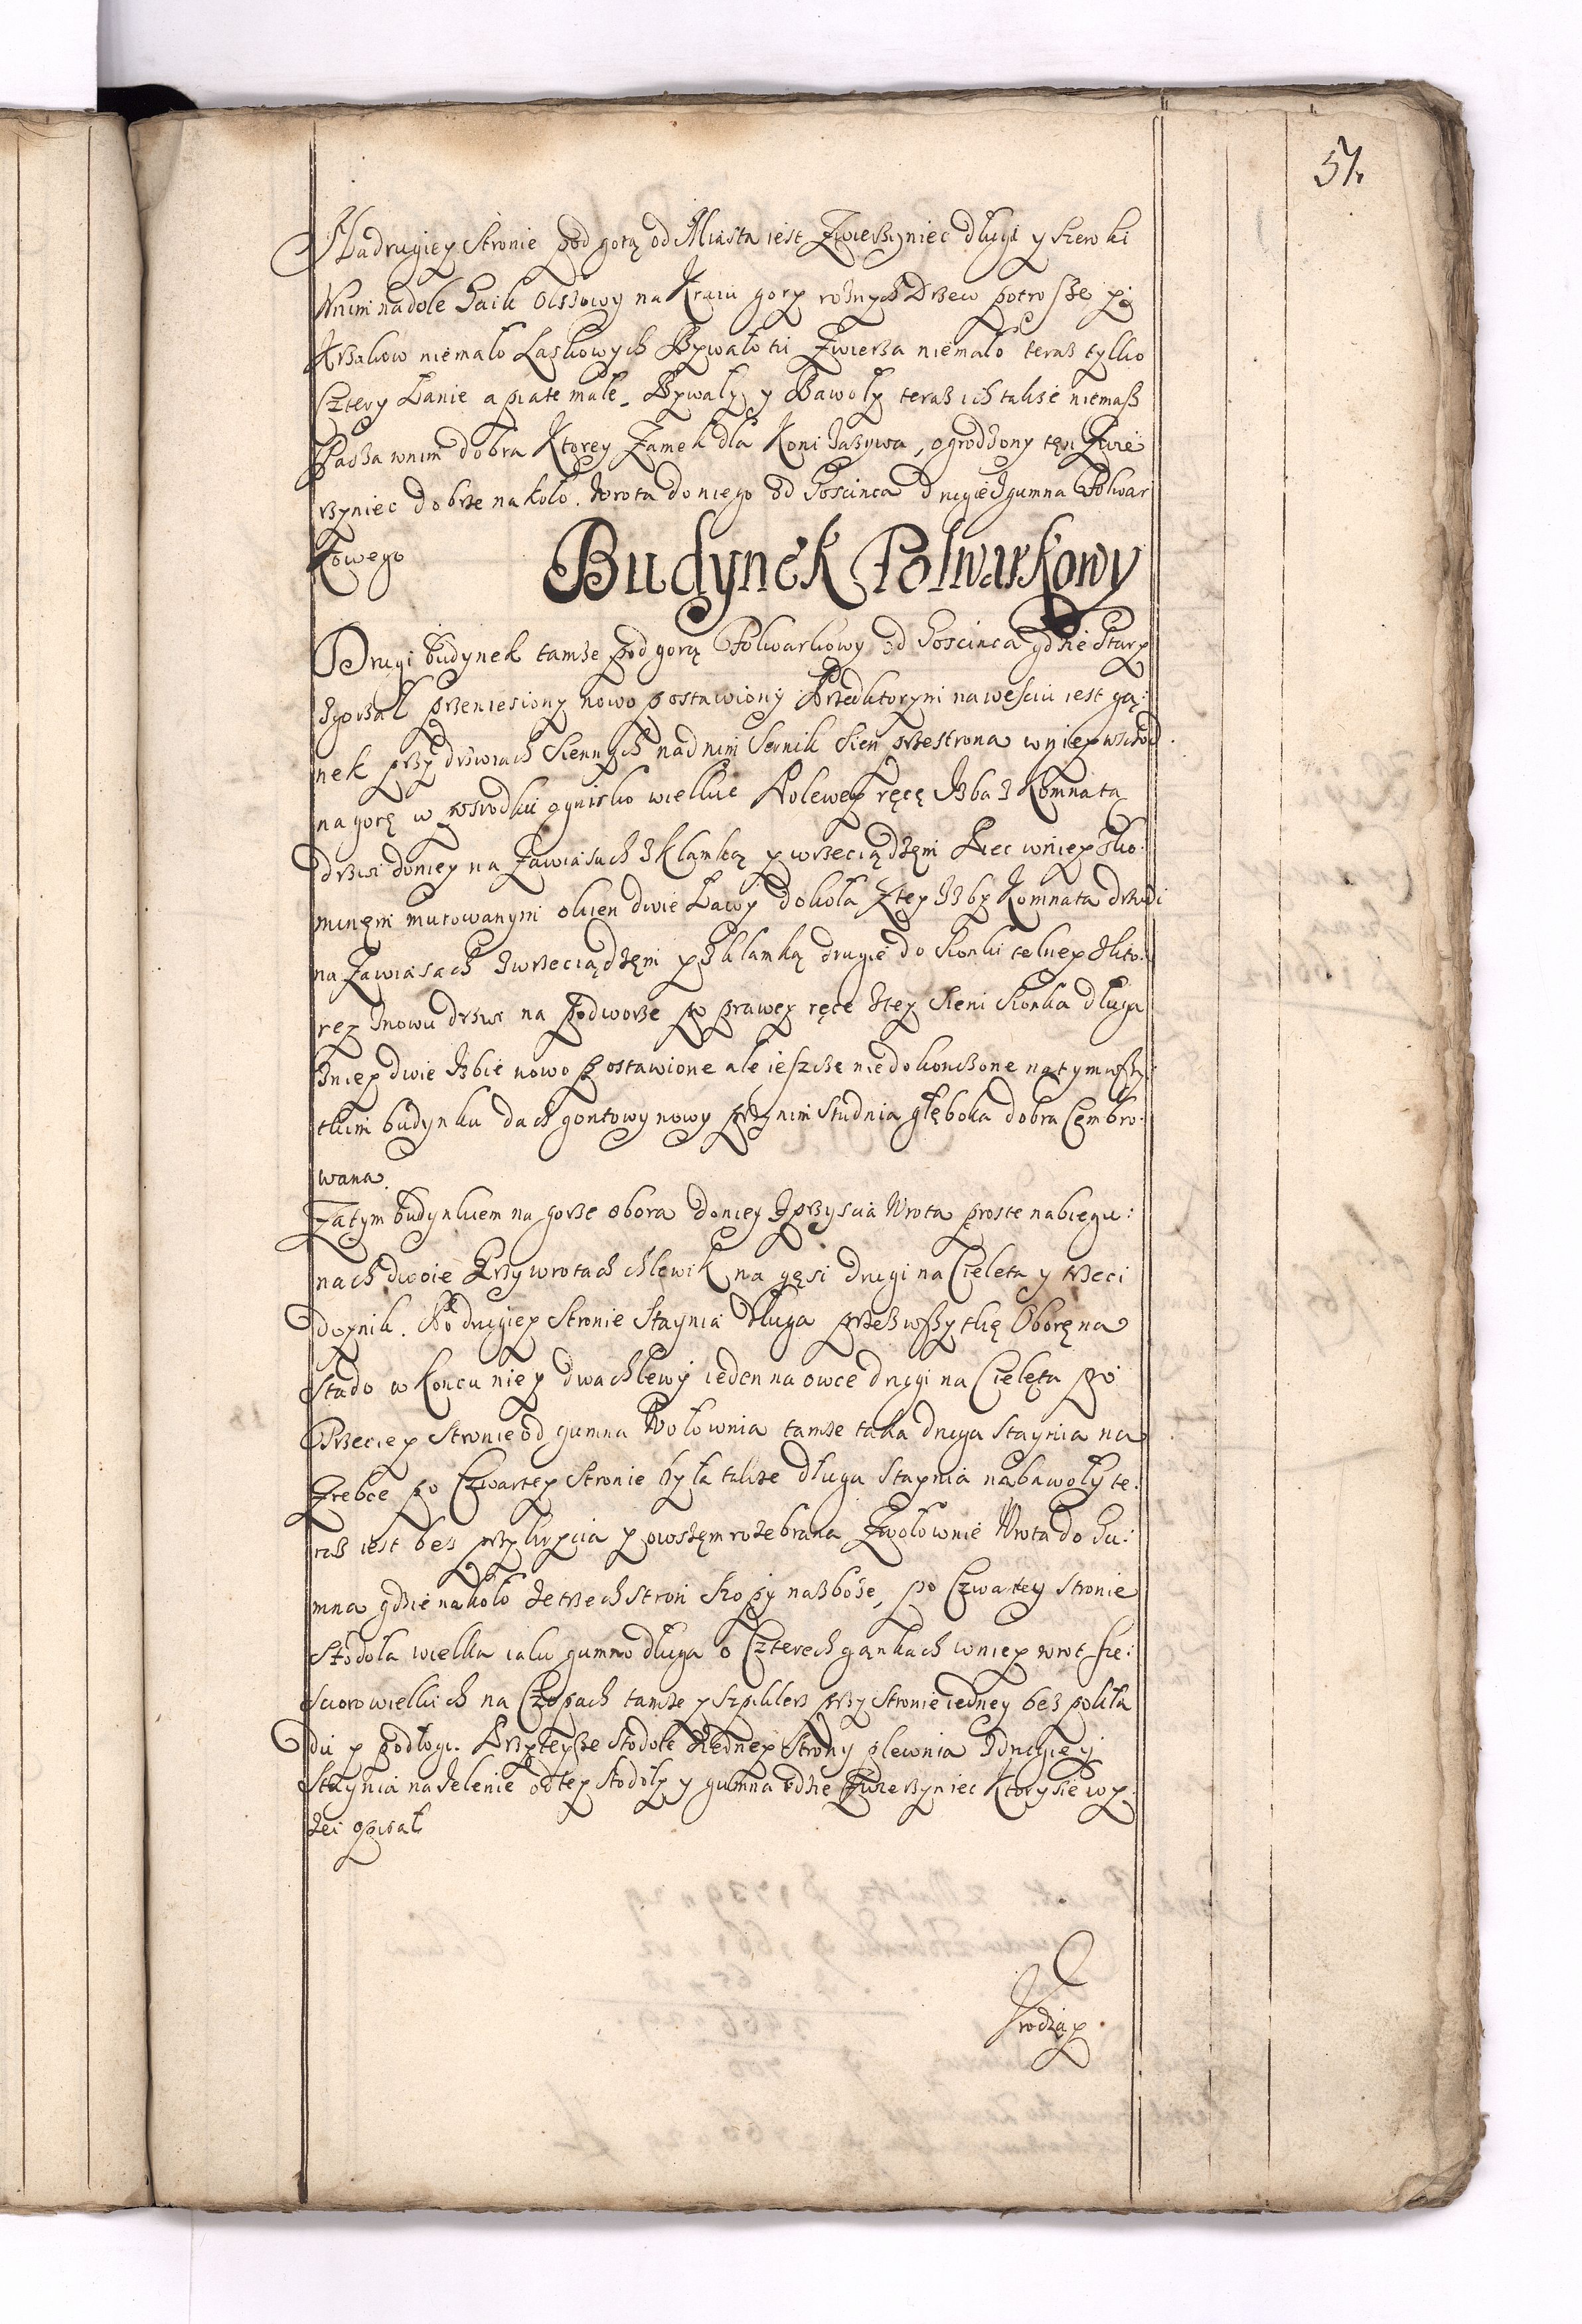 57.
Na drugiey stronie pod gorą od Miasta iest Zwierzyniec długi y szeroki
Wnim nadole Gaik Olszowy na Kraiu gory roznych Drzew potrosze y
Krzakow niemało Laskowych Bywało tu Zwierza niemało teraz tylko
Cztery Łanie a piąte małe. Bywały y Bawoły teraz ich takze niemasz
Pasza wnim dobra Ktorey Zamek dla Koni Zazywa, ogrodzony ten Zwie
rzyniec dobrze nakoło. Wrota doniego od Goscinca drugie Zgumna Folwar
kowego
Budynek Folwarkowy
Drugi budynek tamze pod gorą Folwarkowy od Goscinca gdzie Stary
Zgorzał przeniesiony nowo postawiony Przedktorym naweściu iest ga:
nek przy drzwiach Siennych nad nim Sernik Sien przestrona wniey wschod
na gorę w posrodku ognisko wielkie Polewey ręce Izba Z Komnatą
drzwi doniey na Zawiasach Z Klamką y wrzeciądzem Piec wniey Zko:
minem murowanym okien dwie Ławy dokoła Ztey Izby Komnata drzwi
na Zawiasach Zwrzeciądzem y Zklamką drugie do Sionki tylney Zkto:
rey Znowu drzwi na podworze po prawey ręce Ztey Sieni Sionka długa
Zniey dwie Izbie nowo postawione ale ieszcze niedokonczone natym wszy:
tkim budynku dach gontowy nowy przy nim Studnia głęboka dobra Cembro:
wana.
Zatym budynkiem na gorze obora doniey Zprzyscia Wrota proste nabiegu:
nach dwoie Przywrotach chlewik na gęsi drugi na Cielęta y trzeci
doynik. Po drugiey Stronie Staynia długa przez wszytkę Oborę na
Stado w Koncu niey dwa chlewy ieden na owce drugi na Cielęta po
Trzeciey Stronie od gumna Wołownia tamze taka druga Staynia na
Zrebce po Czwartey Stronie była takze długa Staynia nabawoły te:
raz iest bez przykrycia y owszem rozebrana Zwołownie Wrota do Gu:
mna gdzie nakoło Zetrzech stron Szopy nazboze, po Czwartey stronie
Stodoła wielka iako gumno długa o Czterech gankach wniey wrot sze:
scioro wielkich na Czopach tamze y szpiklerz przy stronie iedney bez pokła
du y podłogi. Przyteyze Stodole Ziedney Strony plewnia Zdrugiey
Staynia na Jelenie odtey Stodoły y gumna idzie Zwierzyniec Ktory sie wy:
zei opisał
Zrodzay.